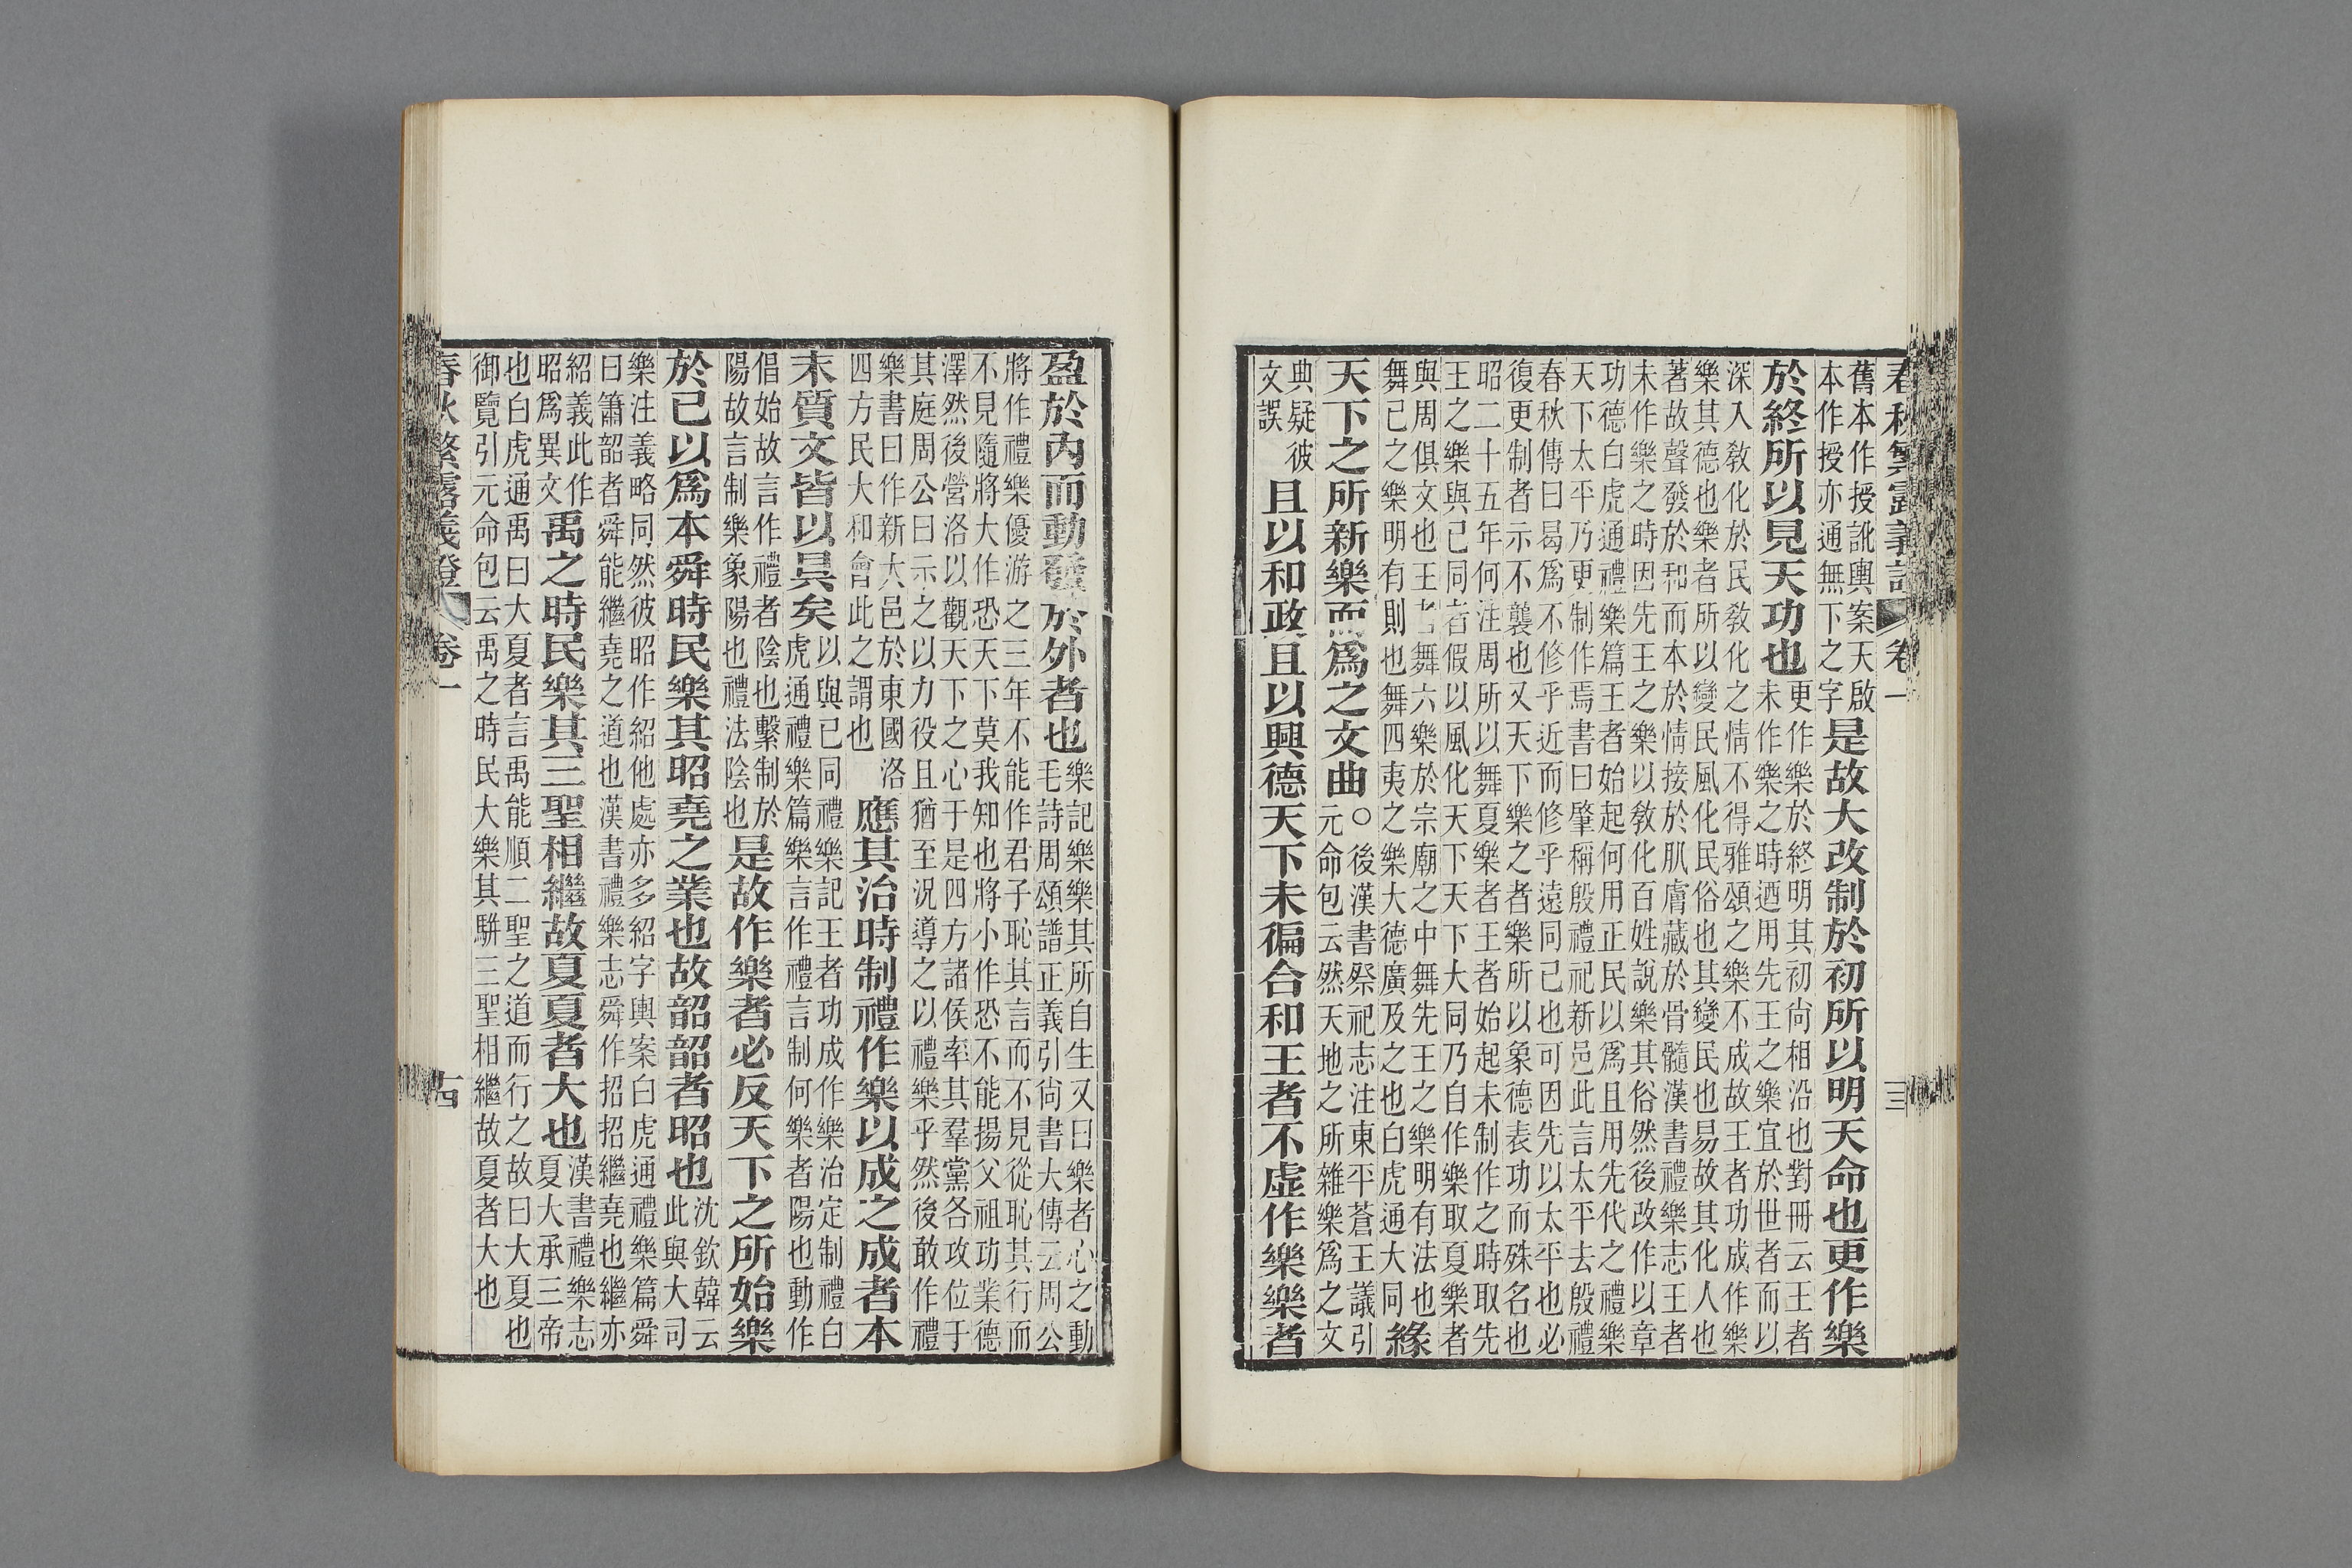 春秋繁露義證 卷一 三
舊本作授訛輿案天啟
本作授亦通無下之字
是故大改制於初所以明天命也更作樂
於終所以見天功也
更作樂於終明其初尚相沿也對冊云王者
未作樂之時迺用先王之樂宜於世者而以
深入敎化於民敎化之情不得雅頌之樂不成故王者功成作樂
樂其德也樂者所以變民風化民俗也其變民也易故其化人也
著故聲發於和而本於情接於肌膚藏於骨髓漢書禮樂志王者
未作樂之時因先王之樂以敎化百姓說樂其俗然後改作以章
功德白虎通禮樂篇王者始起何用正民以爲且用先代之禮樂
天下太平乃更制作焉書曰肇稱殷禮祀新邑此言太平去殷禮
春秋傳曰曷爲不修乎近而修乎遠同己也可因先以太平也必
復更制者示不襲也又天下樂之者樂所以象德表功而殊名也
昭二十五年何注周所以舞夏樂者王者始起未制作之時取先
王之樂與己同者假以風化天下天下大同乃自作樂取夏樂者
與周俱文也王者舞六樂於宗廟之中舞先王之樂明有法也
舞己之樂明有則也舞四夷之樂大德廣及之也白虎通大同
緣
天下之所新樂而爲之文曲
○後漢書祭祀志注東平蒼王議引
元命包云然天地之所雜樂爲之文
典疑彼
文誤
且以和政且以興德天下未徧合和王者不虛作樂樂者
盈於內而動發於外者也
樂記樂樂其所自生又曰樂者心之動
毛詩周頌譜正義引尚書大傳云周公
將作禮樂優游之三年不能作君子恥其言而不見從恥其行而
不見隨將大作恐天下莫我知也將小作恐不能揚父祖功業德
澤然後營洛以觀天下之心于是四方諸侯率其羣黨各攻位于
其庭周公曰示之以力役且猶至況導之以禮樂乎然後敢作禮
樂書曰作新大邑於東國洛
四方民大和會此之謂也
應其治時制禮作樂以成之成者本
末質文皆以具矣
以與已同禮樂記王者功成作樂治定制禮白
虎通禮樂篇樂言作禮言制何樂者陽也動作
倡始故言作禮者陰也繫制於
陽故言制樂象陽也禮法陰也
是故作樂者必反天下之所始樂
於己以爲本舜時民樂其昭堯之業也故韶韶者昭也
沈欽韓云
此與大司
樂注義略同然彼昭作紹他處亦多紹字輿案白虎通禮樂篇舜
曰簫韶者舜能繼堯之道也漢書禮樂志舜作招招繼堯也繼亦
紹義此作
昭爲異文
禹之時民樂其三聖相繼故夏夏者大也
漢書禮樂志
夏大承三帝
也白虎通禹曰大夏者言禹能順二聖之道而行之故曰大夏也
御覽引元命包云禹之時民大樂其駢三聖相繼故夏者大也
春秋繁露義證 卷一 十四